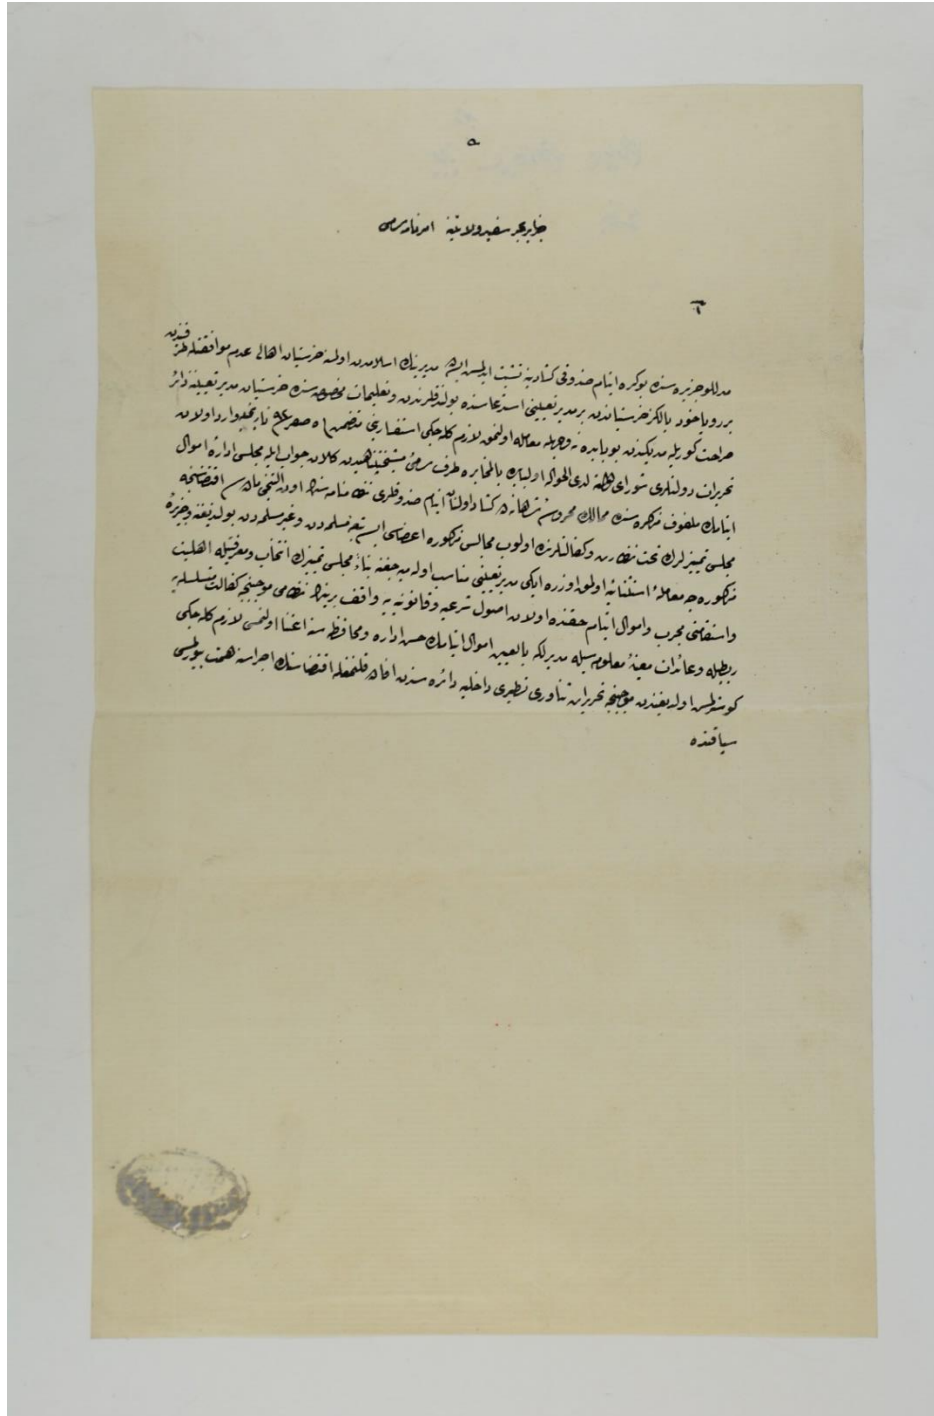 جزایر بحر سفید ولایتنه امرنامه سامی
مدللو جزیره سنده بوکره ایتام صندوقی کشادینه تشبث ایدلمش ایسه ده مدیرینك اسلامدن اولمسنه خرستیان اهالی عدم موافقتله طرفیندن
برر ویاخود یالکز خرستیاندن بر مدیر تعیینی استدعاسنده بولندقلرندن و تعلیمات مخصوصه سنده خرستیان مدیر تعیینه دائر
صراحت کوریله مدیکندن بو بابده نه وجهله معامله اولنمق لازم کله جکی استفسارینی متضمن ٥ صفر تاریخیله وارد اولان
تحریرات دولتلری شورای دولته لدی الحواله اولبابده بالمخابره طرف سامئ مشیختپناهیدن کلان جواب ایله مجلس اداره اموال
ایتامك ملفوف مذکره سنده ممالك محروسه شاهانه ده کشاد اولنان ایتام صندوقلری نظامنامه سنك اوننجی ماده سی اقتضاسنجه
مجلس تمییزلرك تحت نظارت و کفالتلرنده اولوب مجالس مذکوره اعضاسی ایسه تبعه مسلمه دن و غیر مسلمه دن بولندیغنه و جزیرۀ
مذکوره جه معاملۀ استثنائیه اولمق اوزره ایکی مدیر تعیینی مناسب اوله میه جغنه بناءً مجلس تمییزك انتخاب و معرفتیله اهلیت
و استقامتی مجرب و اموال ایتام حقنده اولان اصول شرعیه و قانونیه یه واقف برینك نظامی موجبنجه کفالت متسلسله یه
ربطیله و عائدات معینۀ معلومه سیله مدیرلکه بالتعیین اموال ایتامك حسن اداره و محافظه سنه اعتنا اولنمسی لازم کله جکی
کوسترلمش اولدیغندن موجبنجه تحریرات ثناوری تسطیری داخلیه دائره سندن افاده قلنمغله اقتضاسنك اجراسنه همت بیورلمسی
سیاقنده